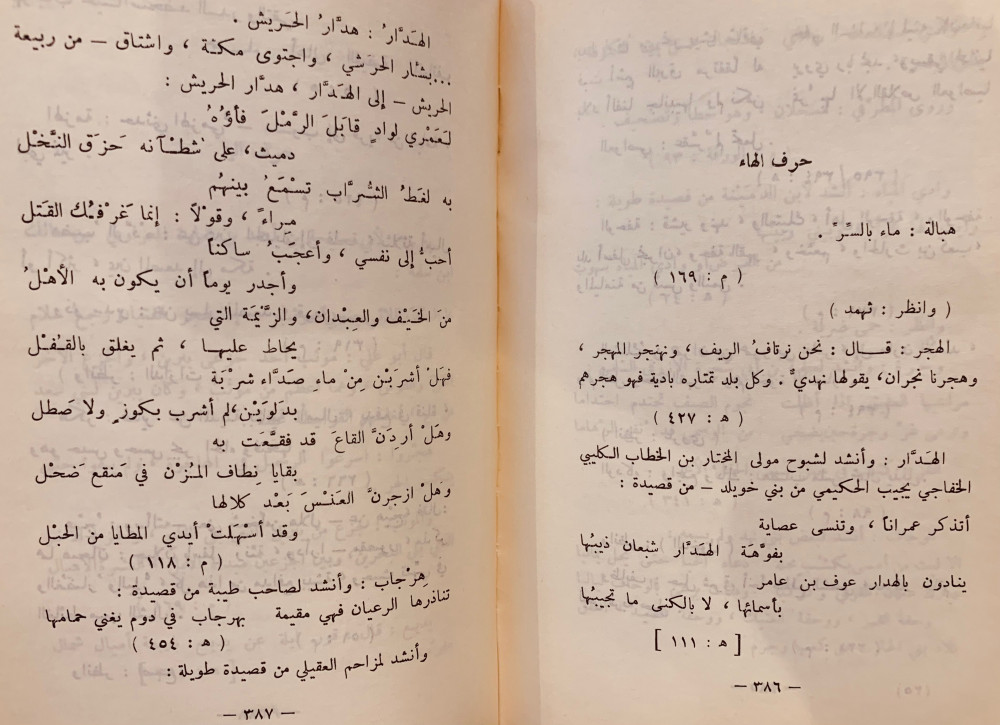 حرف الهاء
هبالة : ماء بالسِّرِّ .
( م : ١٦٩ )
( وانظر : ثهمد )
الهجر : قـــال : نحن نرتافُ الريف ، ونهتجر المهجر ،
وهجرنا نجران، يقولها نهديٌّ . وكل بلد تمتاره بادية فهو هجرهم
( ه : ٤٢٧ )
الهَدَّار : وأنشد لشبوح مولى المختار بن الخطاب الكليبي
الخفاجي يجيب الحكيمي من بني خويلد – من قصيدة :
أتذكر عمراناً ، وتنسى عصابة
بفوَّهَة الهَدَّار شبعان ذيبُها
ينادون بالهدار عوف بن عامر
بأسمائها ، لا بالكنى ما تجيبُها
[ ه : ١١١ ]
– ٣٨٦ –
الهَدَّارُ : هدَّارُ الحَريش .
...بشار الحَرشي ، واجتوى مكة ، واشتاق – من ربيعة
الحريش – إلى الهَدَّار ، هدار الحريش :
لعَمْري لوادٍ قابَلَ الرَّمْلَ فأوُهُ
دميث، على شطآنه حَزَق النَّخْل
به لغَطُ الشُّرَّاب تسْمَعُ بينهُم
مِراءً ، وقوْلاً : إنما غَرْفتُك القَتل
أحبُّ إلى نفسي ، وأعجَبُ ساكناً
وأجدر يوماً أن يكون به الأهْلُ
منَ الخَيْف والعِبْدان، والزَّيْمَة التي
يحاط عليهــا ، ثم يغلق بالقُفْل
فهَلْ أشرَبَنْ مِنْ ماءِ صَدَّاء شرْبَة
بدَلوَيْن،لم أشرب بكوزٍ ولا صَطل
وهَلْ أردَنَّ القاعَ قد فقَّعَت به
بقايا نِطاف المُزْن في مَنقع ضَحْل
وهلْ ازجرنَّ العَنْسَ بَعْد كلالها
وقد أسْهَلتْ أيدي المطايا من الحَبْل
( م : ١١٨ )
هِرْجاب : وأنشد لصاحب طيبة من قصيدة :
تناذرها الرعيان فهي مقيمة بهرجاب في دوم يغني حمامها
( ه : ٤٥٤ )
وأنشد لمزاحم العقيلي من قصيدة طويلة :
– ٣٨٧ –